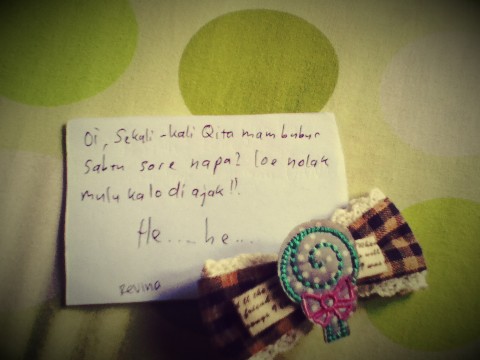 Oi, Sekali-kali Qita mam bubur
Sabtu sore napa? loe nolak
mulu kalo di ajak!!
He....he...
Revina